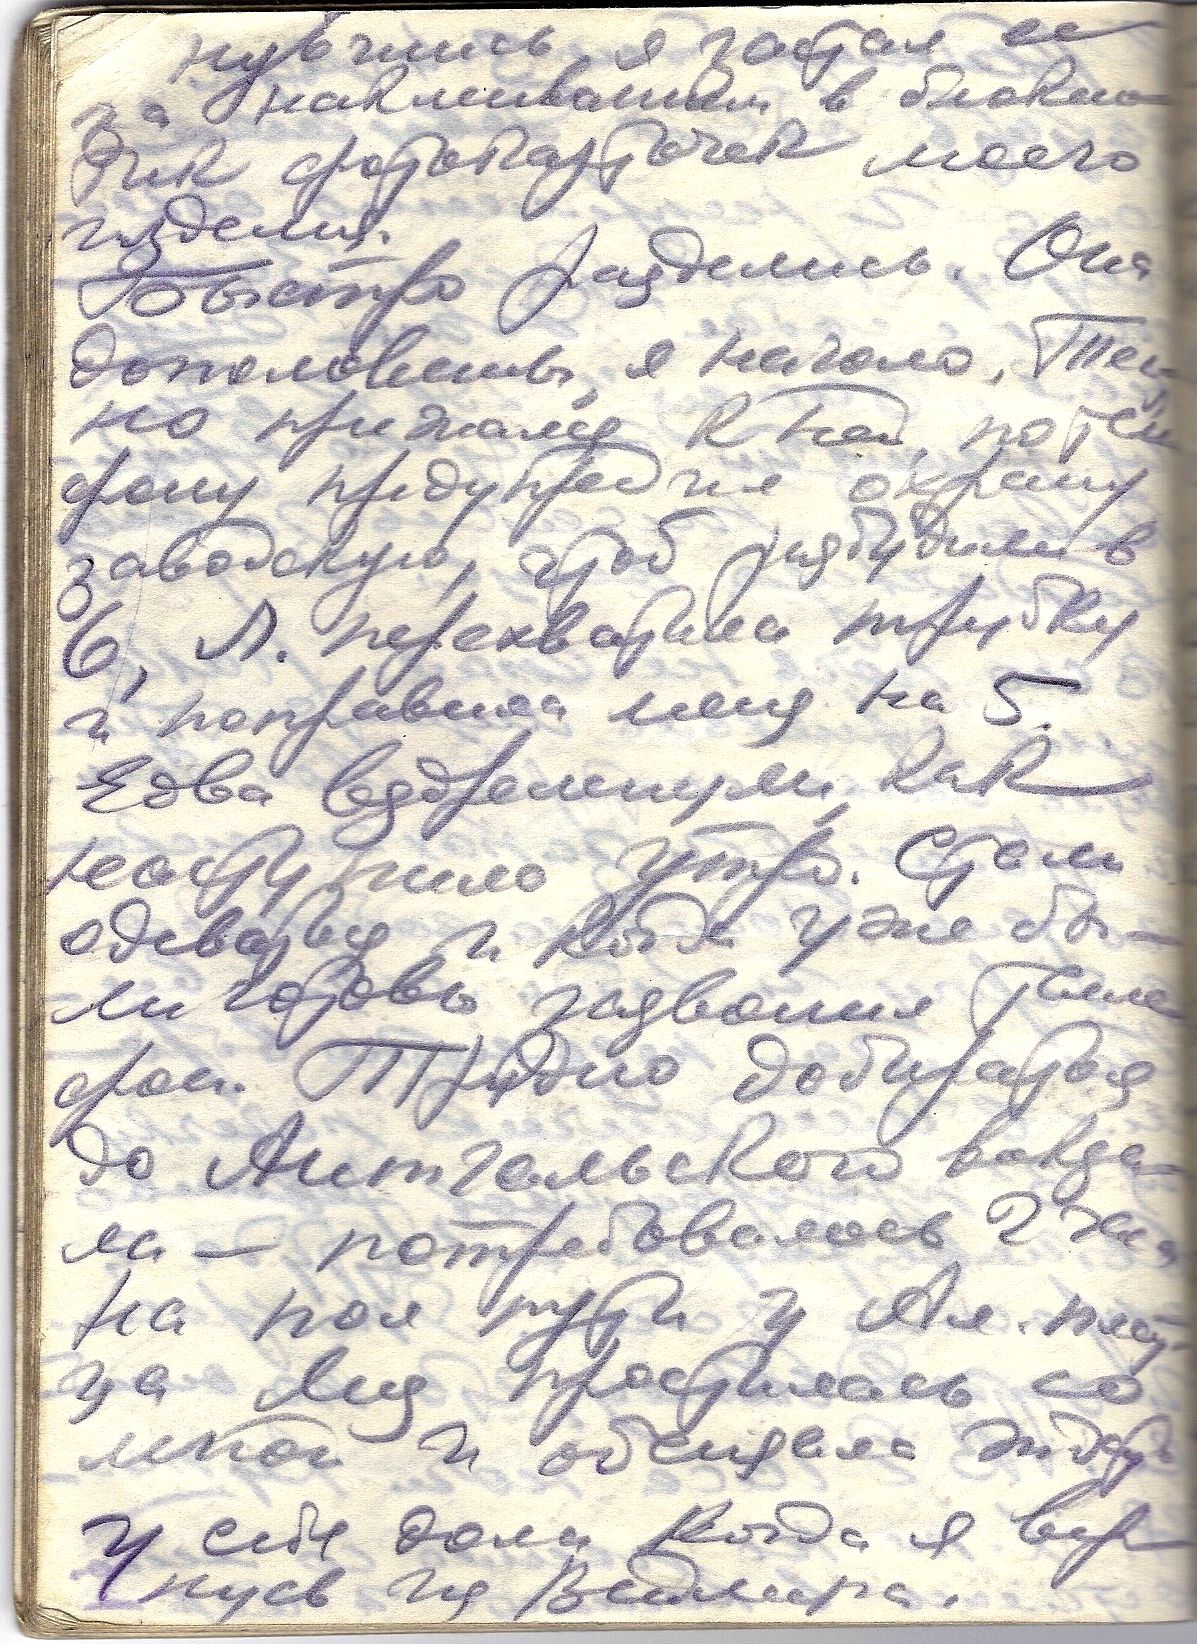 нувшись я застал ее
за наклеиванием в блокно-
тик фотокарточек моего
изделия.
Быстро разделись. Она
до половины, я наголо. Тес-
но прижался к ней, по теле
фону предупредил охрану
заводскую, чтоб разбудили в
6, Л. перехватила трубку
и поправила меня на 5.
Едва вздремнули, как
наступило утро. Стали
одеваться и когда уже бы-
ли готовы зазвонил теле
фон. Трудно добираться
до Ангальского вокза-
ла – потребовалось 2 часа
на пол пути у Ал. плат
ца Лида простилась со
мной и обещала ждать
у себя дома когда я вер
нусь из Веймара.